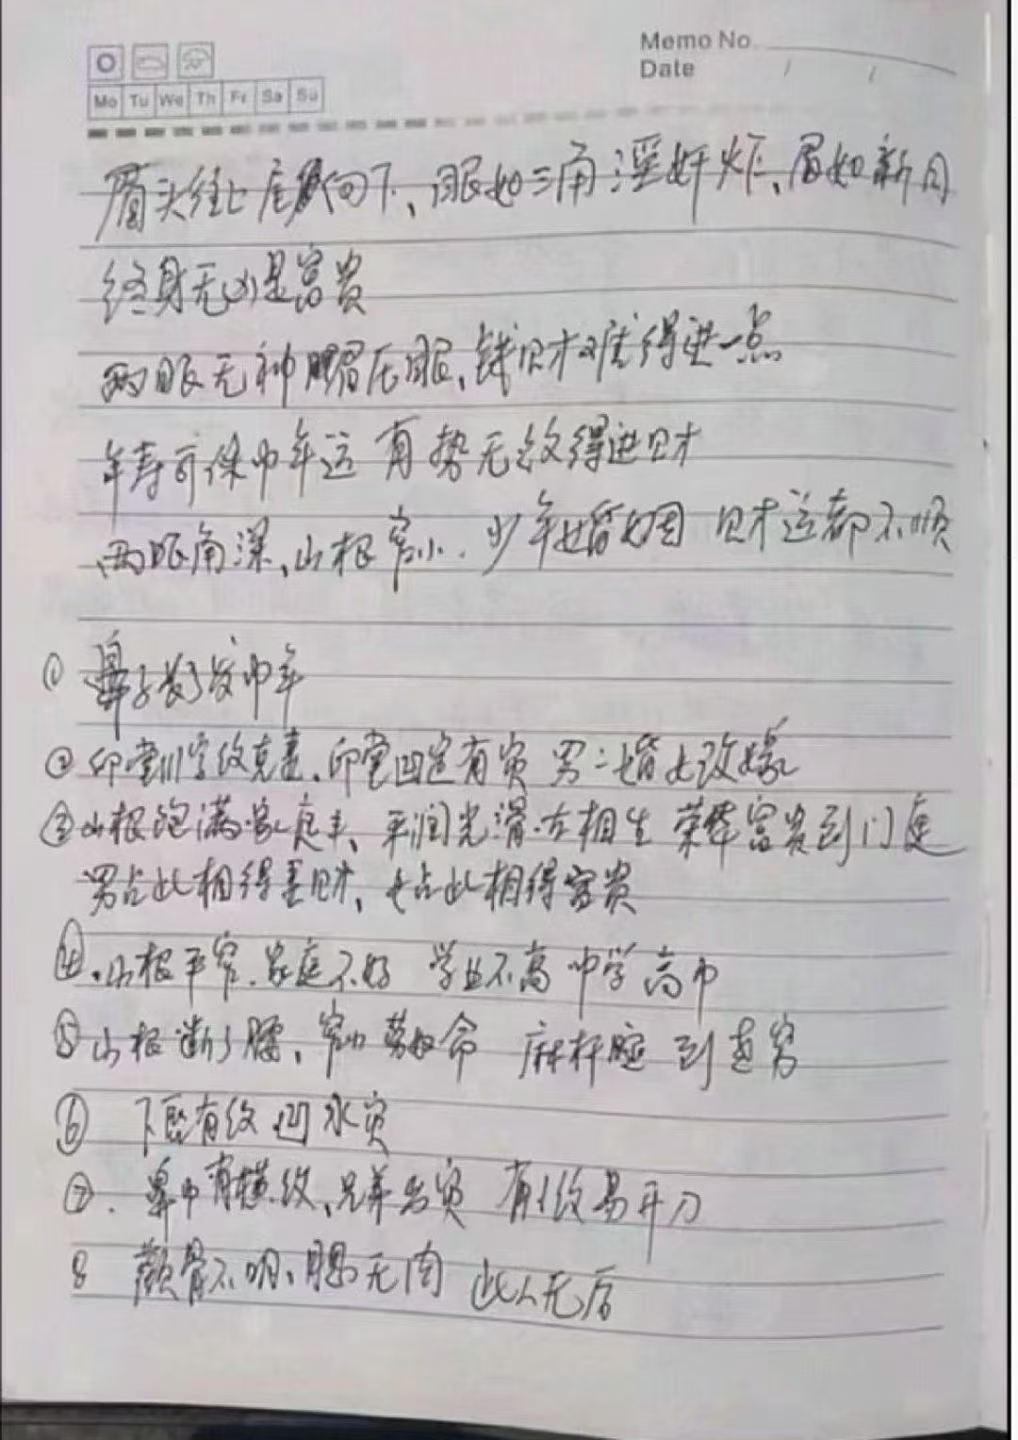 Memo No.
Date / /
Mo Tu We Th Fr Sa Su
眉头往上尾向下、眼如三角淫奸炸、眉如新月
终身无凶是富贵
两眼无神眉压眼、钱财难得进一点
年寿可保中年运 有势无纹得进财
两眼角深、山根窄小、少年婚姻 财运都不顺
① 鼻子好发中年
② 印堂川字纹克妻、印堂凹定有灾 男二婚女改嫁
③ 山根饱满家庭丰、平润光滑 相生 荣华富贵到门庭
男占此相得妻财、女占此相得富贵
④、山根平窄、家庭不好 学业不高 中学高中
⑤ 山根断了腰、窄小劳奴命 麻杆腿 到老穷
⑥ 下 有纹 凹 水灾
⑦、鼻中有横纹、兄弟出灾 有1纹易开刀
8 颧骨不明、腮无肉 此人无后